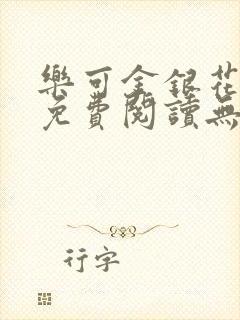 樂可金銀花
免費閱讀無
行字